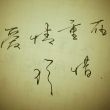 愛情重在
珍惜